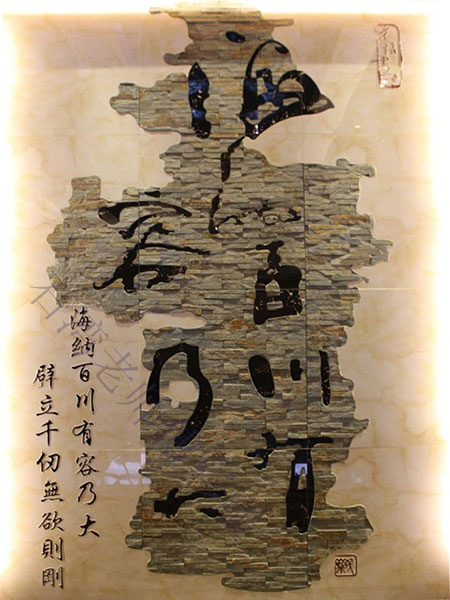 海纳百川有
容乃大
海納百川有容乃大
辟立千仞無欲則剛